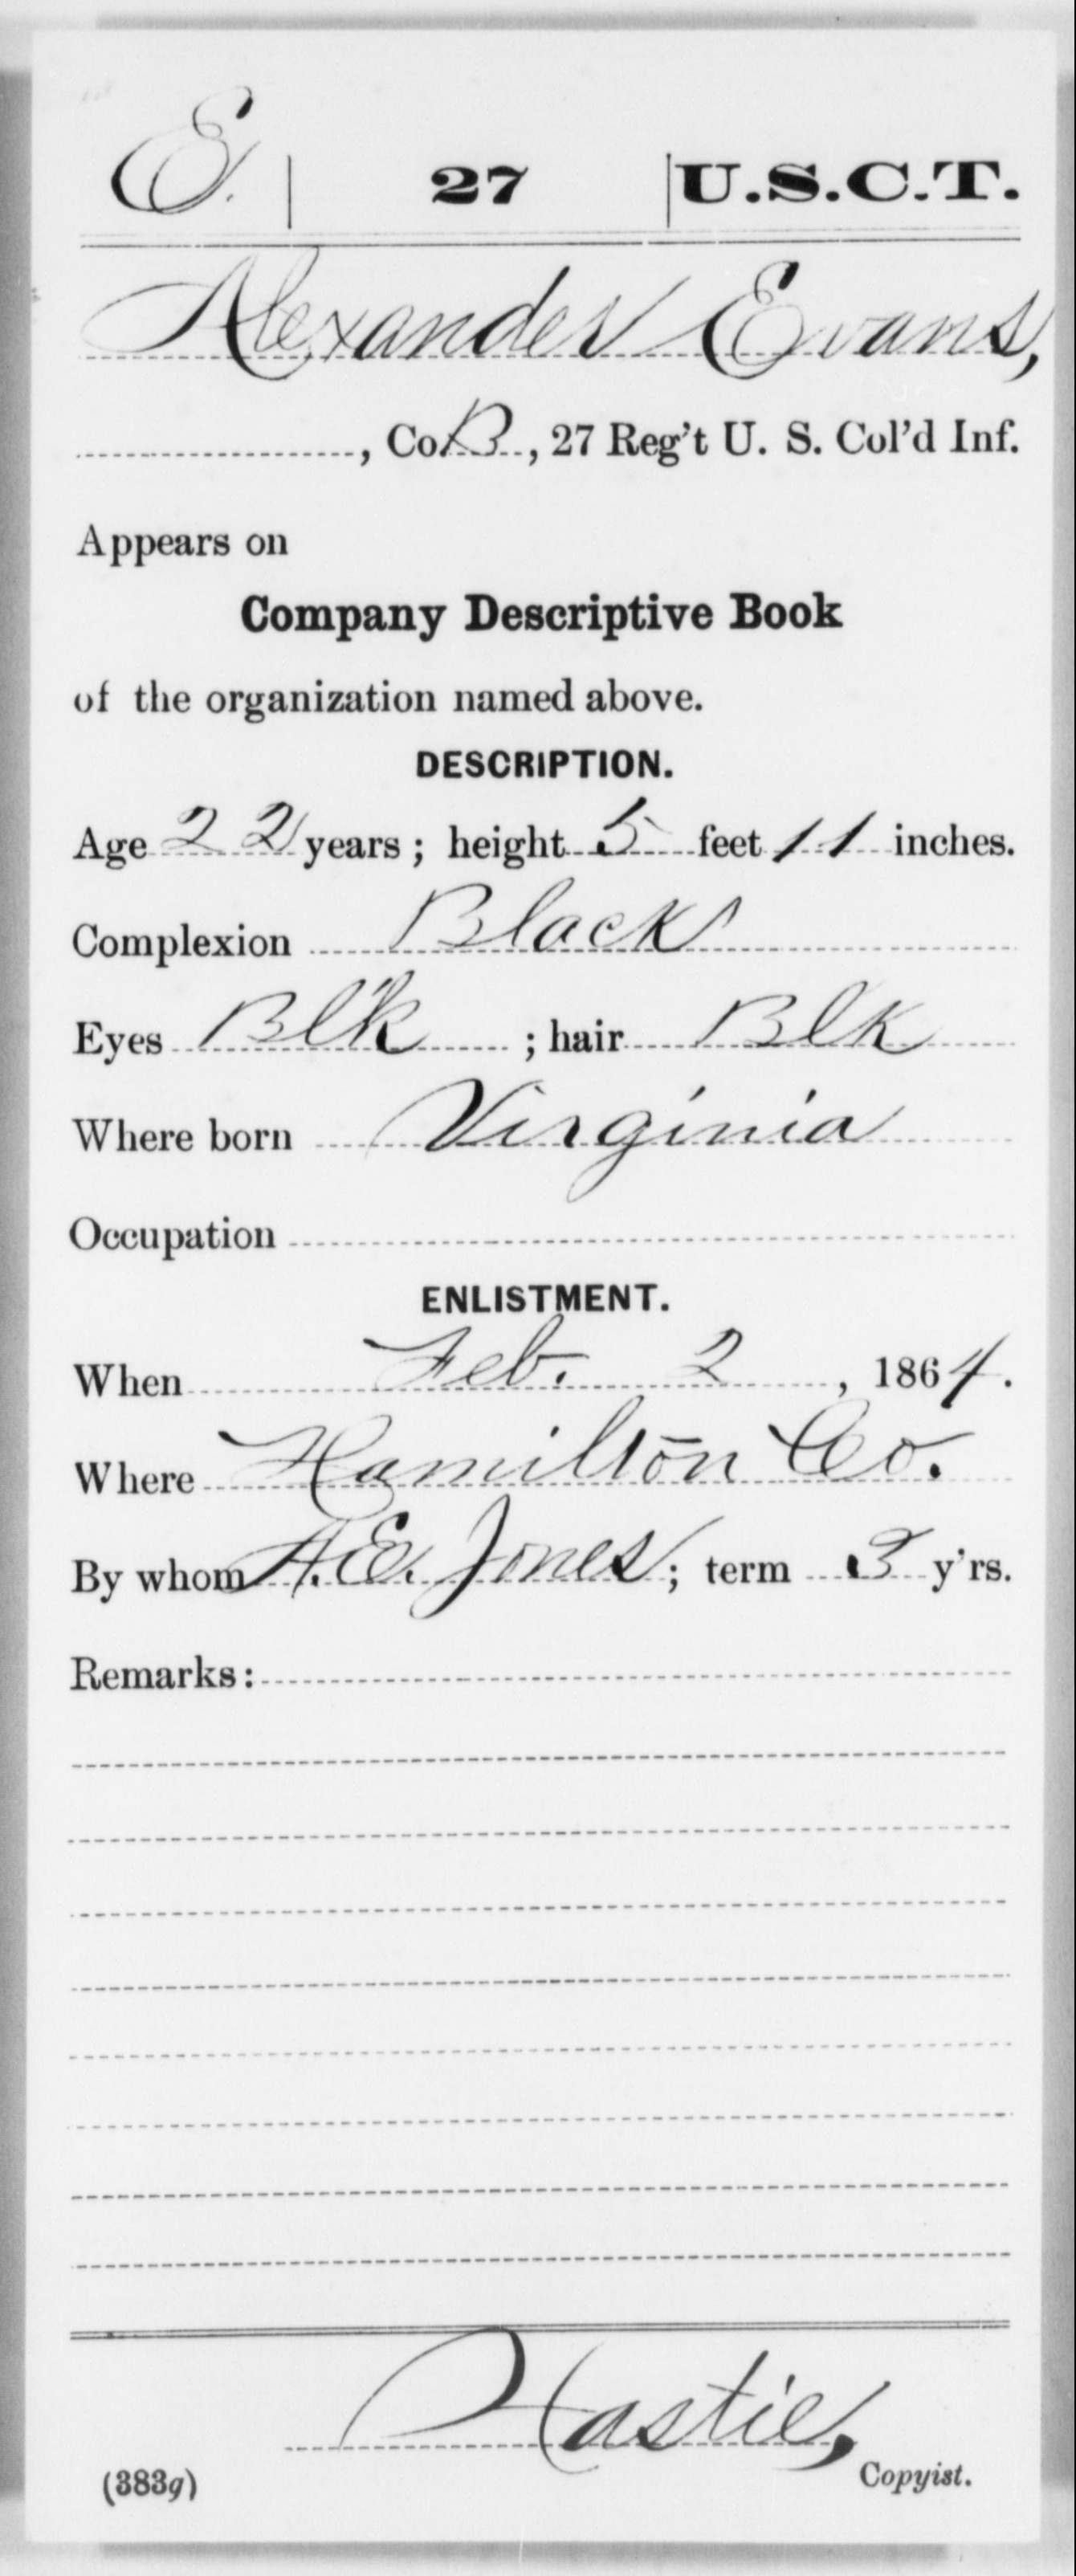 E. | 27 | U.S.C.T.
Alexander Evans,
, Co. B, 27 Reg't U. S. Col'd Inf.
Appears on
Company Descriptive Book
of the organization named above.
DESCRIPTION.
Age 22 years; height 5 feet 11 inches.
Complexion Black
Eyes Blk ; hair Blk
Where born Virginia
Occupation
ENLISTMENT.
When Feb. 2, 1864.
Where Hamilton Co.
By whom A.E. Jones; term 3 y'rs.
Remarks:
Hastie,
(383g) Copyist.